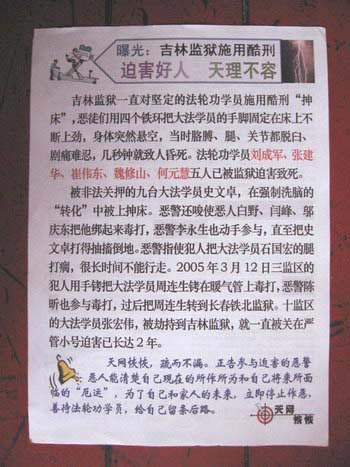 曝光：吉林监狱施用酷刑
迫害好人　天理不容
吉林监狱一直对坚定的法轮功学员施用酷刑“抻
床”，恶徒们用四个铁环把大法学员的手脚固定在床上不
断上劲，身体突然悬空，当时胳膊、腿、关节都脱臼、
剧痛难忍，几秒钟就致人昏死。法轮功学员刘成军、张建
华、崔伟东、魏修山、何元慧五人已被监狱迫害致死。
被非法关押的九台大法学员史文卓，在强制洗脑的
“转化”中被上抻床。恶警还唆使恶人白野、闫峰、邬
庆东把他绑起来毒打，恶警李永生也动手参与，直至把史
文卓打得抽搐倒地。恶警指使犯人把大法学员石国宏的腿
打病，很长时间不能行走。2005年3月12日三监区的
犯人用手铐把大法学员周连生铐在暖气管上毒打，恶警陈
昕也参与毒打，过后把周连生转到长春铁北监狱。十监区
的大法学员张宏伟，被劫持到吉林监狱，就一直被关在严
管小号迫害已长达2年。
天网恢恢，疏而不漏。正告参与迫害的恶警
恶人能清楚自己现在的所作所为和自己将来所面
临的“厄运”，为了自己和家人的未来，立即停止作恶，
善待法轮功学员，给自己留条后路。
天网
恢恢